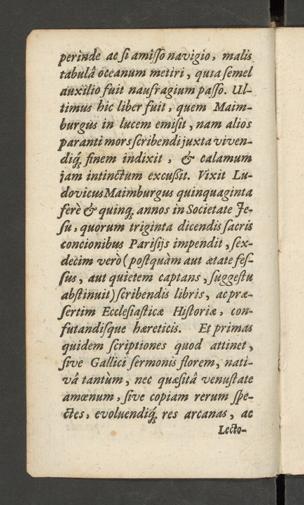 perinde ac ſi amiſſo navigio, malis
tabulâ oceanum metiri, quia ſemel
auxilio fuit naufragium paſſo. Ul-
timus hic liber fuit, quem Maim-
burgus in lucem emiſit, nam alios
paranti mors ſcribendi juxta viven-
diq́; finem indixit, & calamum
jam intinctum excußit. Vixit Lu-
dovicus Maimburgus quinquaginta
ferè & quinq; annos in Societate Je-
ſu, quorum triginta dicendis ſacris
concionibus Pariſijs impendit, ſex-
decim verò (poſtquàm aut ætate feſ-
ſus, aut quietem captans, ſuggeſtu
abſtinuit) ſcribendis libris, ac præ-
ſertim Eccleſiaſticæ Hiſtoriæ, con-
futandiſque hæreticis. Et primas
quidem ſcriptiones quod attinet,
ſive Gallici ſermonis florem, nati-
vâ tantùm, nec quæſitâ venuſtate
amœnum, ſive copiam rerum ſpe-
ctes, evoluendiq́; res arcanas, ac
Lecto-